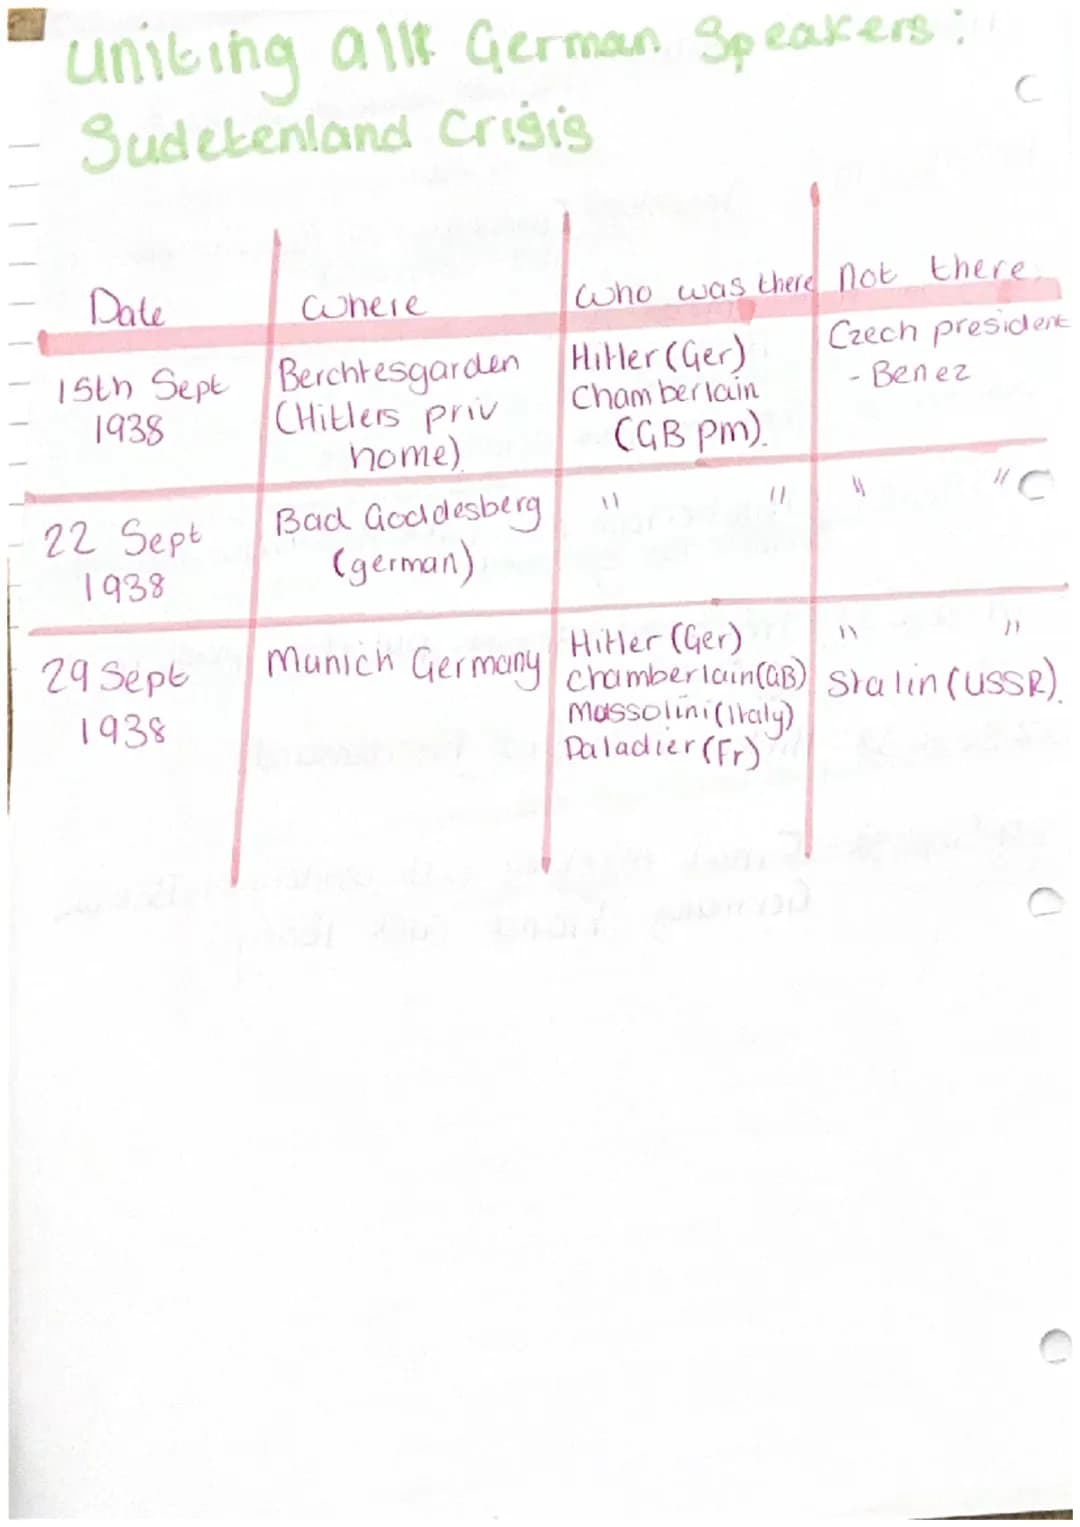 Uniting all German Speakers:
Sudetenland Crisis
Date Where Who was there not there
15th Sept 1938 Berchtesgarden (Hitlers priv home) Hitler (Ger) Chamberlain (GB pm). Czech president - Benez
22 Sept 1938 Bad Goddesberg (german) " " " "
29 Sept 1938 Munich Germany Hitler (Ger) Chamberlain (GB) Mussolini (Italy) Daladier (Fr) " " Stalin (USSR).